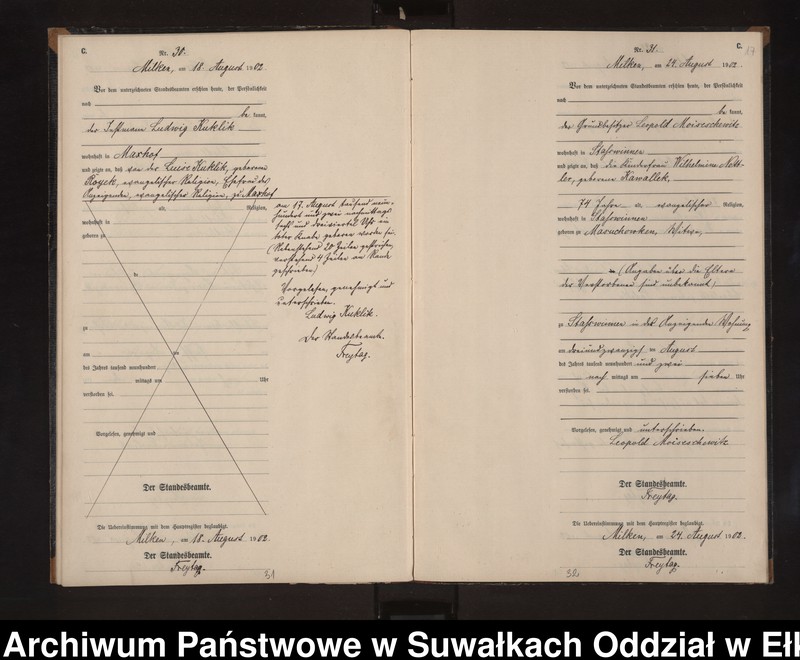 C.
Nr. 30.
Milken, am 18. August 1902.
Vor dem unterzeichneten Standesbeamten erschien heute, der Persönlichkeit
nach
be kannt,
der Instmann Ludwig Kuklik
wohnhaft in Marhof
und zeigte an, daß von der Luise Kuklik, geborene
Royek, evangelischer Religion, Ehefrau des
Anzeigenden, evangelischer Religion, zu Marhof
alt, Religion,
wohnhaft in
geboren zu
zu
am um
des Jahres tausend neunhundert
mittags um Uhr
verstorben sei.
Vorgelesen, genehmigt und
Der Standesbeamte.
am 17. August tausend neun-
hundert und zwei nachmittags
und dreiviertel Uhr ein
todter Knabe geboren worden sei.
(Nebenstehend 20 Zeilen gestrichen,
vorstehend 4 Zeilen am Rande
geschrieben)
Vorgelesen, genehmigt und
unterschrieben.
Ludwig Kuklik.
Der Standesbeamte.
Freytag.
Die Uebereinstimmung mit dem Hauptregister beglaubigt.
Milken, am 18. August 1902.
Der Standesbeamte.
Freytag.
31
C.
17
Nr. 31.
Milken, am 24. August 1902.
Vor dem unterzeichneten Standesbeamten erschien heute, der Persönlichkeit
nach
be kannt,
der Grundbesitzer Leopold Moiseschewitz
wohnhaft in Staswinnen
und zeigte an, daß die Kinderfrau Wilhelmine
geborene Kawallek,
74 Jahre alt, evangelischer Religion,
wohnhaft in Staswinnen
geboren zu Maruchowken, Witwe,
(Angaben über die Eltern
der Verstorbenen sind unbekannt)
zu Staswinnen in des Anzeigenden Wohnung
am dreiundzwanzigsten August
des Jahres tausend neunhundert und zwei
nach mittags um sieben Uhr
verstorben sei.
Vorgelesen, genehmigt und unterschrieben.
Leopold Moiseschewitz
Der Standesbeamte.
Freytag.
Die Uebereinstimmung mit dem Hauptregister beglaubigt.
Milken, am 24. August 1902.
Der Standesbeamte.
Freytag.
32
Archiwum Państwowe w Suwałkach Oddział w Ełk